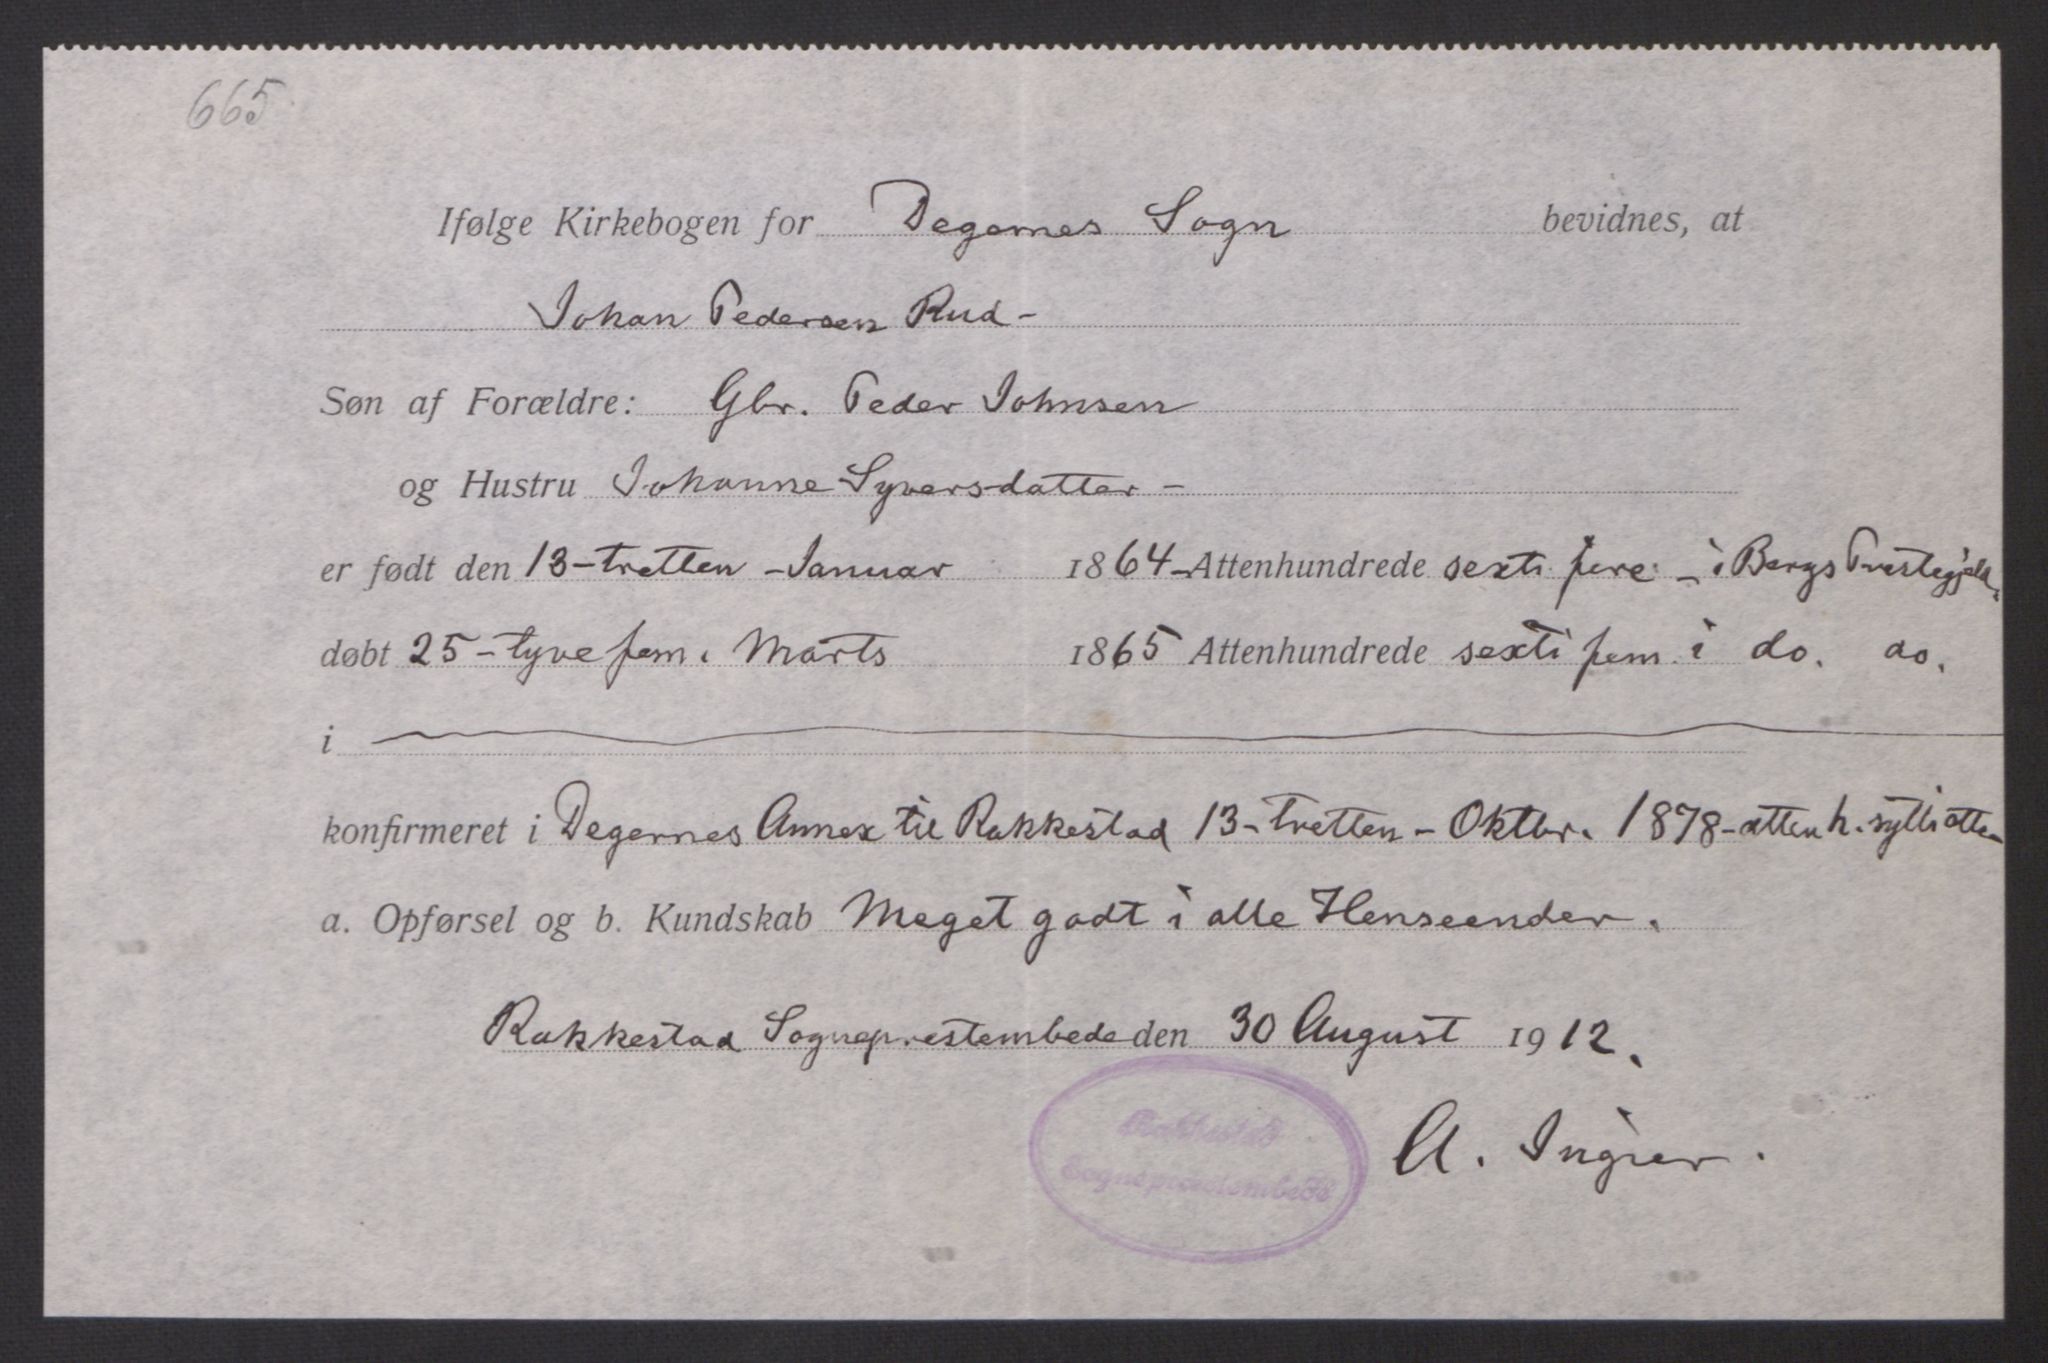 665
Ifølge Kirkebogen for Degernes Sogn bevidnes, at
Johan Pedersen Rud -
Søn af Forældre: Gbr. Peder Johnsen
og Hustru Johanne Syversdatter -
er født den 13 - tretten - Januar 1864 - Attenhundrede sexti fire - i Bergs Prestegjeld.
døbt 25 - tyve fem. Marts 1865 Attenhundrede sexti fem i do. do.
i
konfirmeret i Degernes Annex til Rakkestad 13 - tretten - Oktbr. 1878 - atten h. sytti otte
a. Opførsel og b. Kundskab Meget godt i alle Henseender.
Rakkestad Sogneprestembede den 30 August 1912.
Rakkestad
Sogneprestembede
A. Ingier.